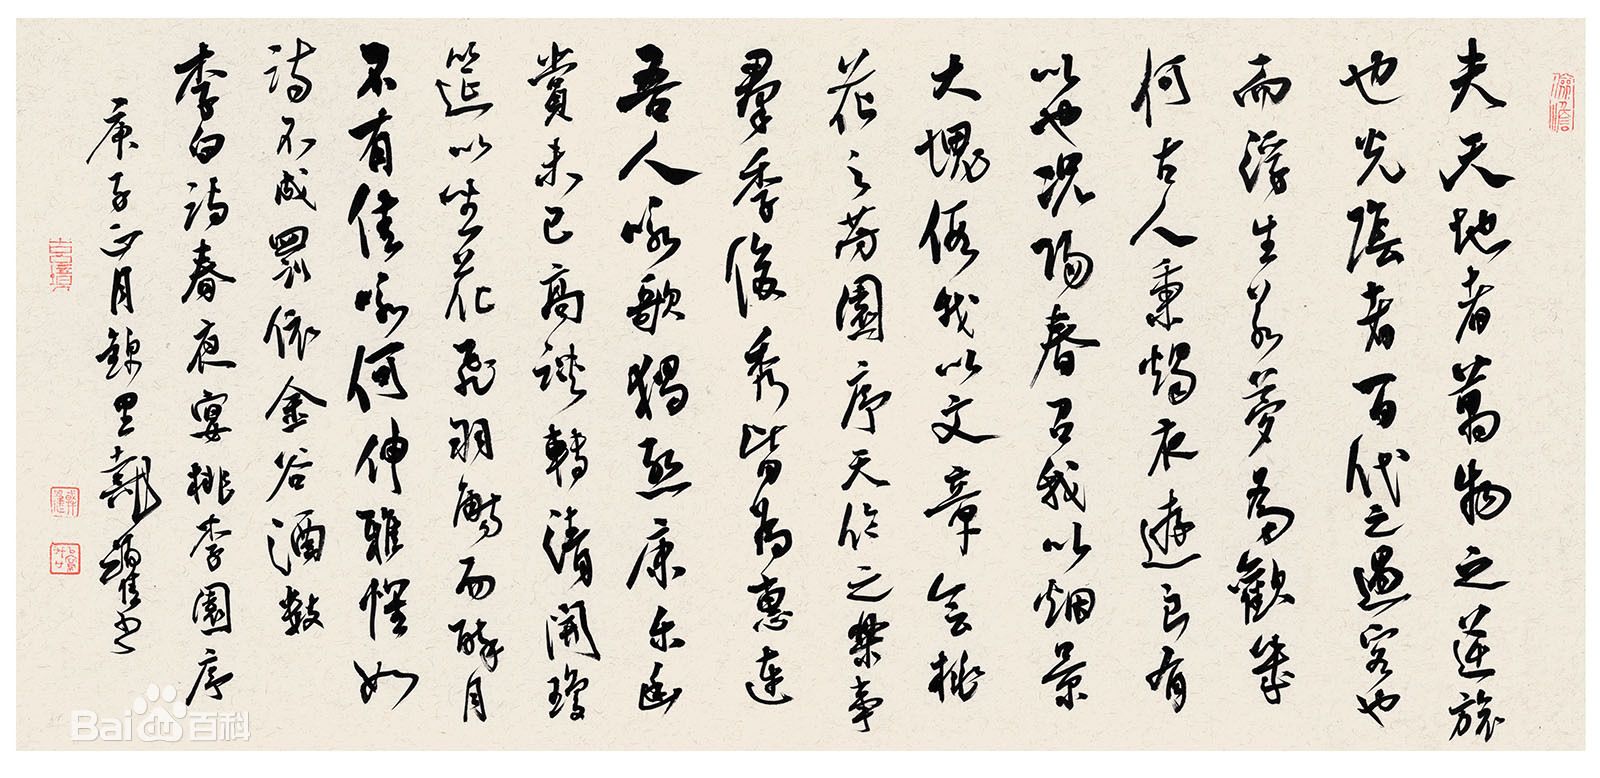 夫天地者萬物之逆旅
也光陰者百代之過客也
而浮生若夢為歡幾
何古人秉燭夜遊良有
以也況陽春召我以烟景
大塊假我以文章會桃
花之芳園序天倫之樂事
羣季俊秀皆為惠連
吾人咏歌獨慙康樂幽
賞未已高談轉清開瓊
筵以坐花飛羽觴而醉月
不有佳咏何伸雅懷如
詩不成罰依金谷酒數
李白詩春夜宴桃李園序
庚子正月錦里書
Bai百科